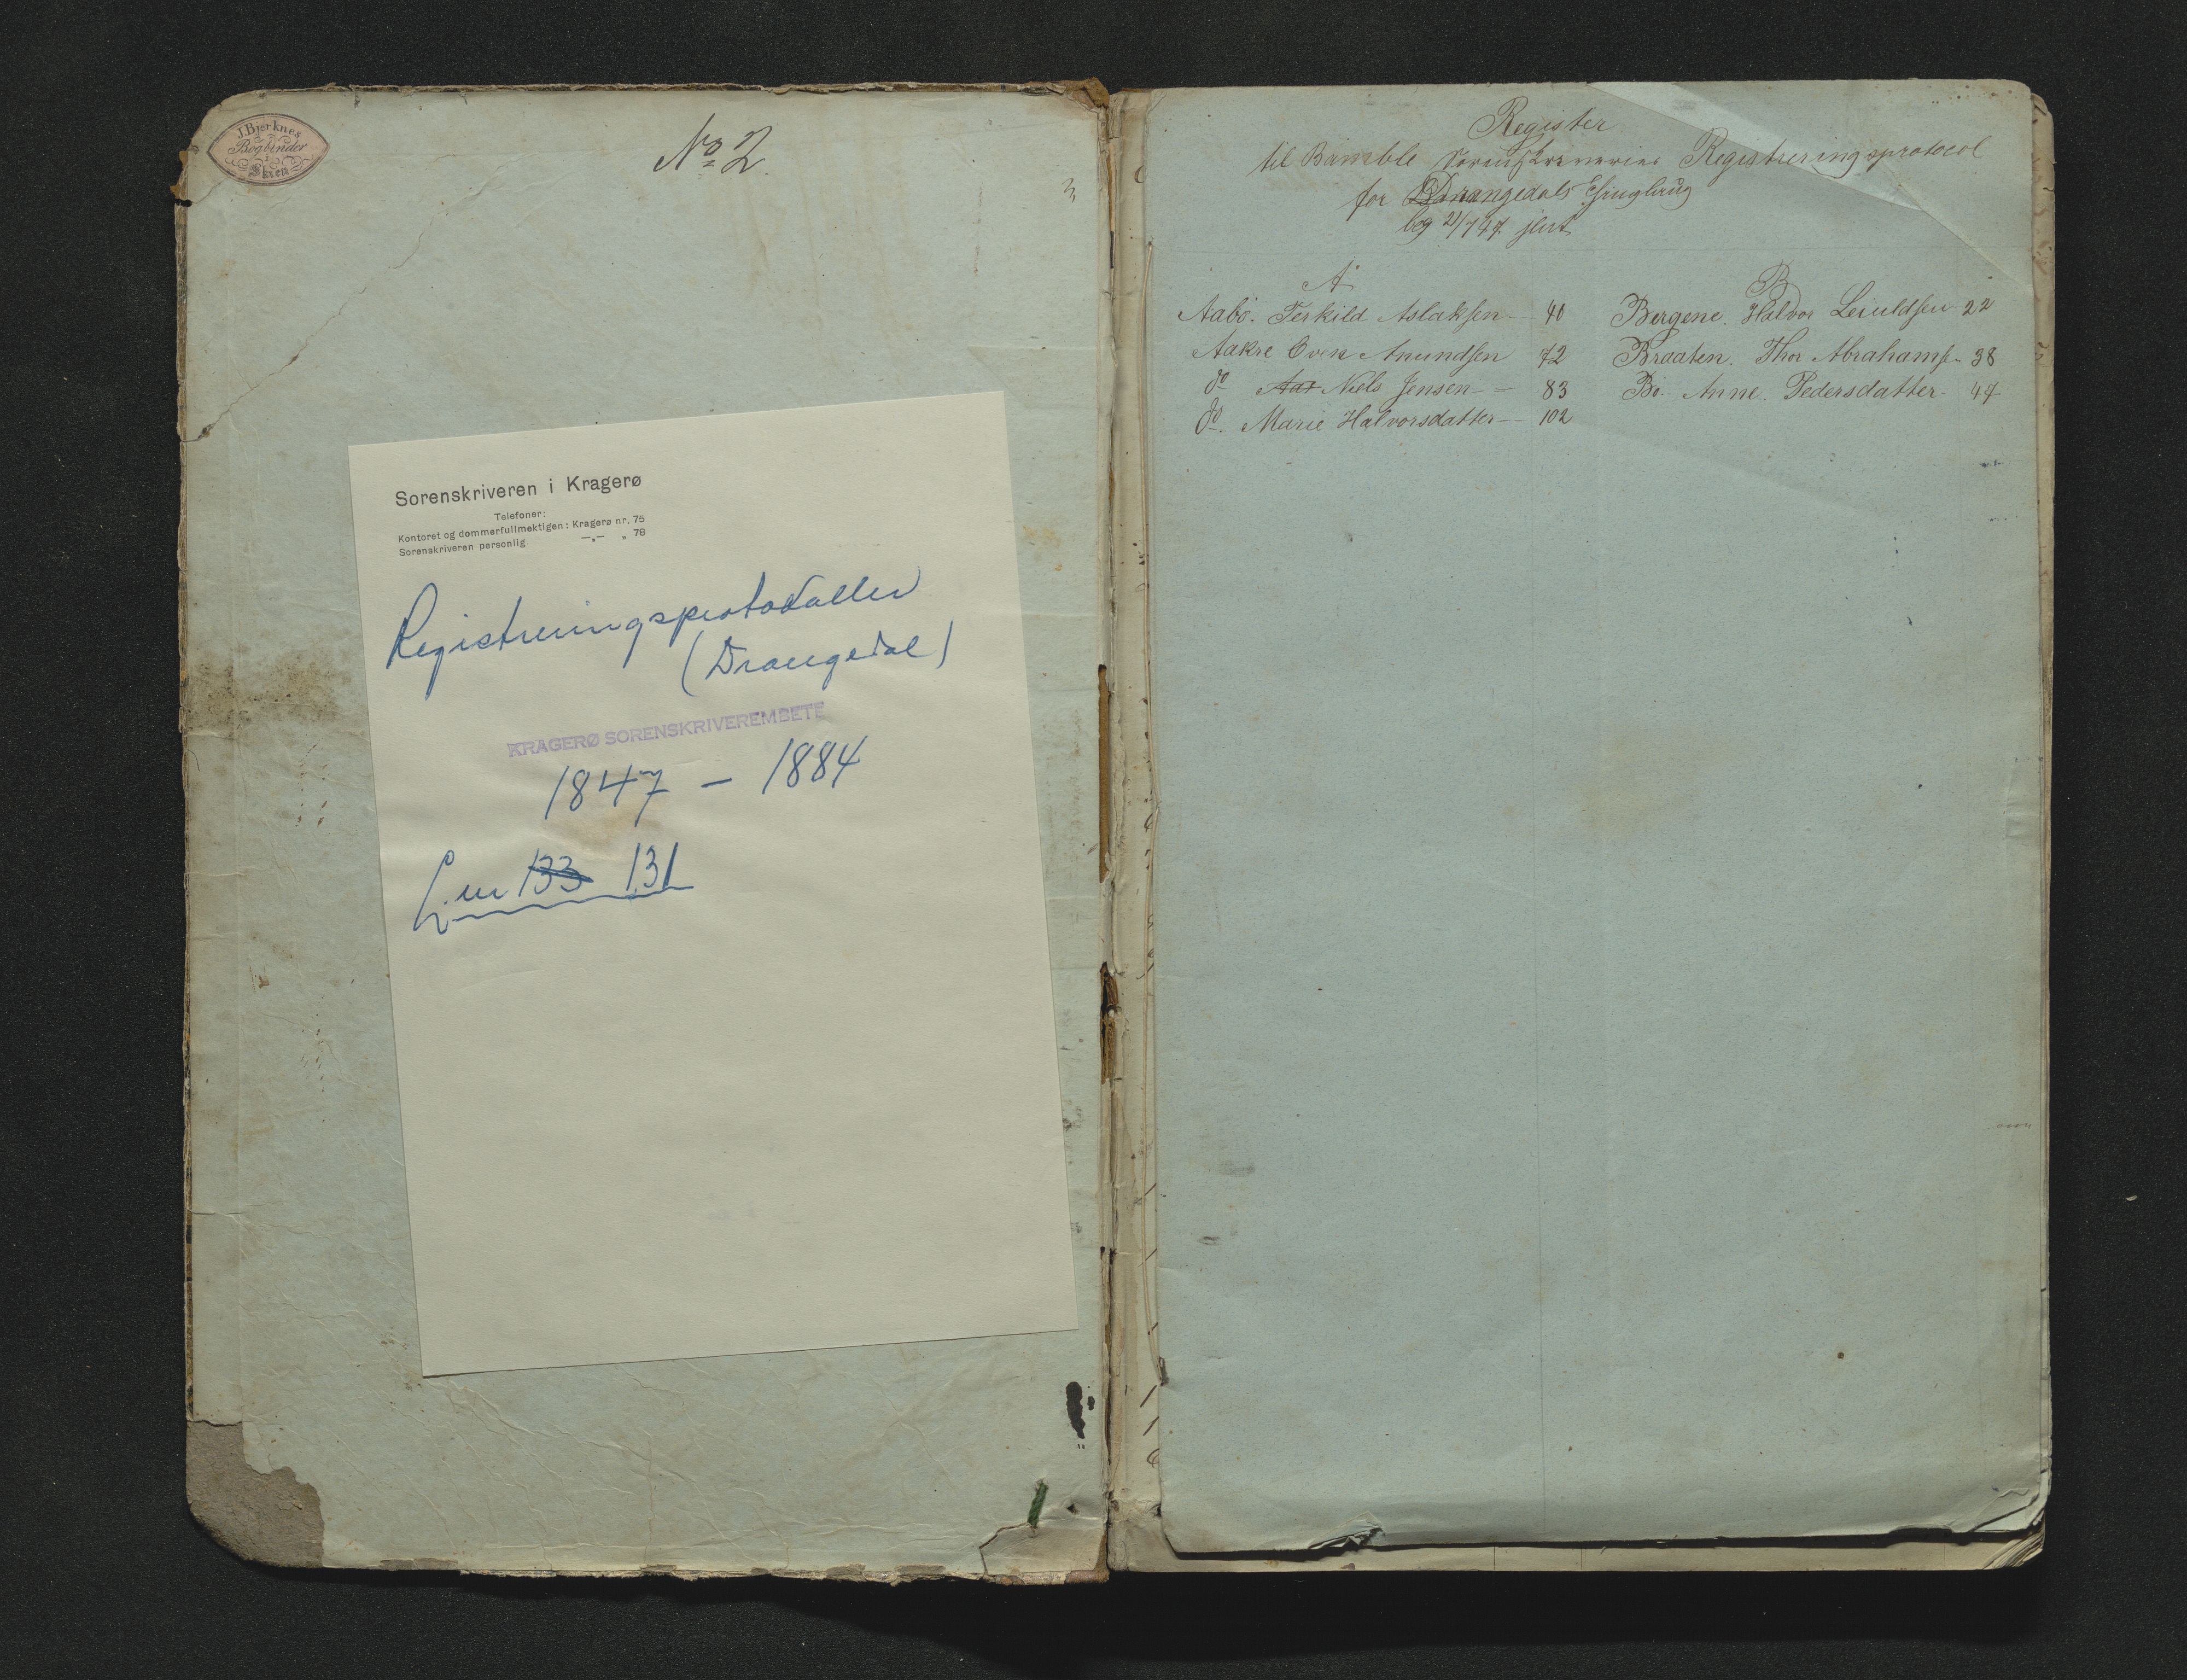 J. Bjerknes
Bogbinder
i
Skien
No 2.
3
Sorenskriveren i Kragerø
Telefoner:
Kontoret og dommerfullmektigen: Kragerø nr. 75
Sorenskriveren personlig —„— „ 78
Registreringsprotokoller
(Drangedal)
KRAGERØ SORENSKRIVEREMBETE
1847 - 1884
L. nr 133 131
Register
til Bamble Sorenskriveries Registreringsprotocol
for Drangedals Thinglaug
beg 21/7 47
A
Aabø. Terkild Aslaksen — 40
Aakre Even Anundsen 72
do Aa Niels Jensen — 83
do. Marie Halvorsdatter — 102
B
Bergene. Halvor Leiuldsen 22
Braaten. Thor Abrahams. 38
Bø. Anne Pedersdatter 47